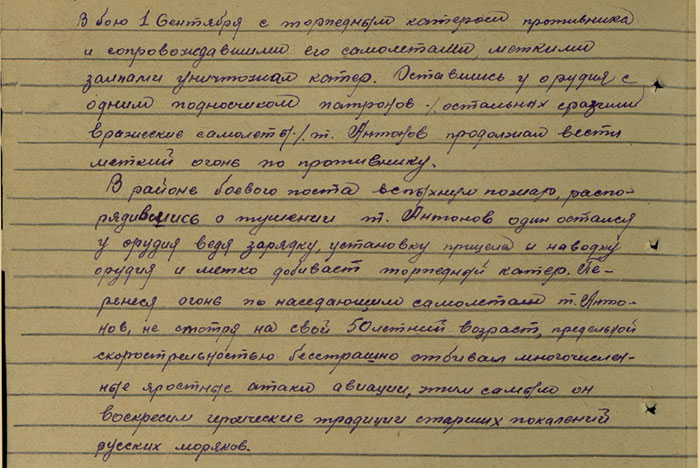 В бою 1 Сентября с торпедным катером противника
и сопровождавшими его самолетами, меткими
залпами уничтожал катер. Оставшись у орудия с
одним подносчиком патронов ./. остальных сразили
вражеские самолеты ./. т. Антонов продолжал вести
меткий огонь по противнику.
В районе боевого поста вспыхнул пожар, распо-
рядившись о тушении т. Антонов один остался
у орудия ведя зарядку, установку прицела и наводку
орудия и метко добивает торпедной катер. Пе-
ренеся огонь по наседающим самолетам т. Анто-
нов, не смотря на свой 50летний возраст, предельной
скорострельностью бесстрашно отбивал многочислен-
ные яростные атаки авиации, этим самым он
воскресил героические традиции старших поколений
русских моряков.